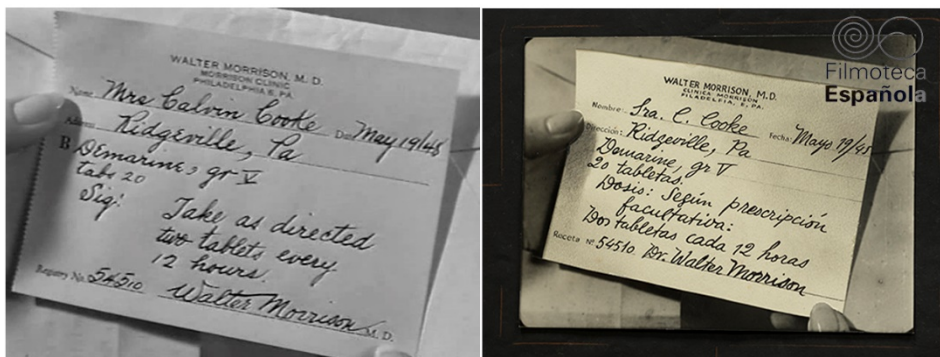 WALTER MORRISON, M. D.
MORRISON CLINIC
PHILADELPHIA E, PA.
Name Mrs Calvin Cooke Date May 19/45
Address Ridgeville, Pa
R Demarine, gr V
tabs 20
Sig: Take as directed
two tablets every
12 hours.
Registry No. 54510 Walter Morrison M. D.
Filmoteca
Española
WALTER MORRISON, M.D.
CLINICA MORRISON
PILADELFIA, E, PA.
Nombre: Sra. C. Cooke Fecha: Mayo 19/45
Dirección: Ridgeville, Pa
Demarine, gr V
20 tabletas.
Dosis: Según prescripción
facultativa:
Dos tabletas cada 12 horas
Receta Nº 54510 Dr. Walter Morrison